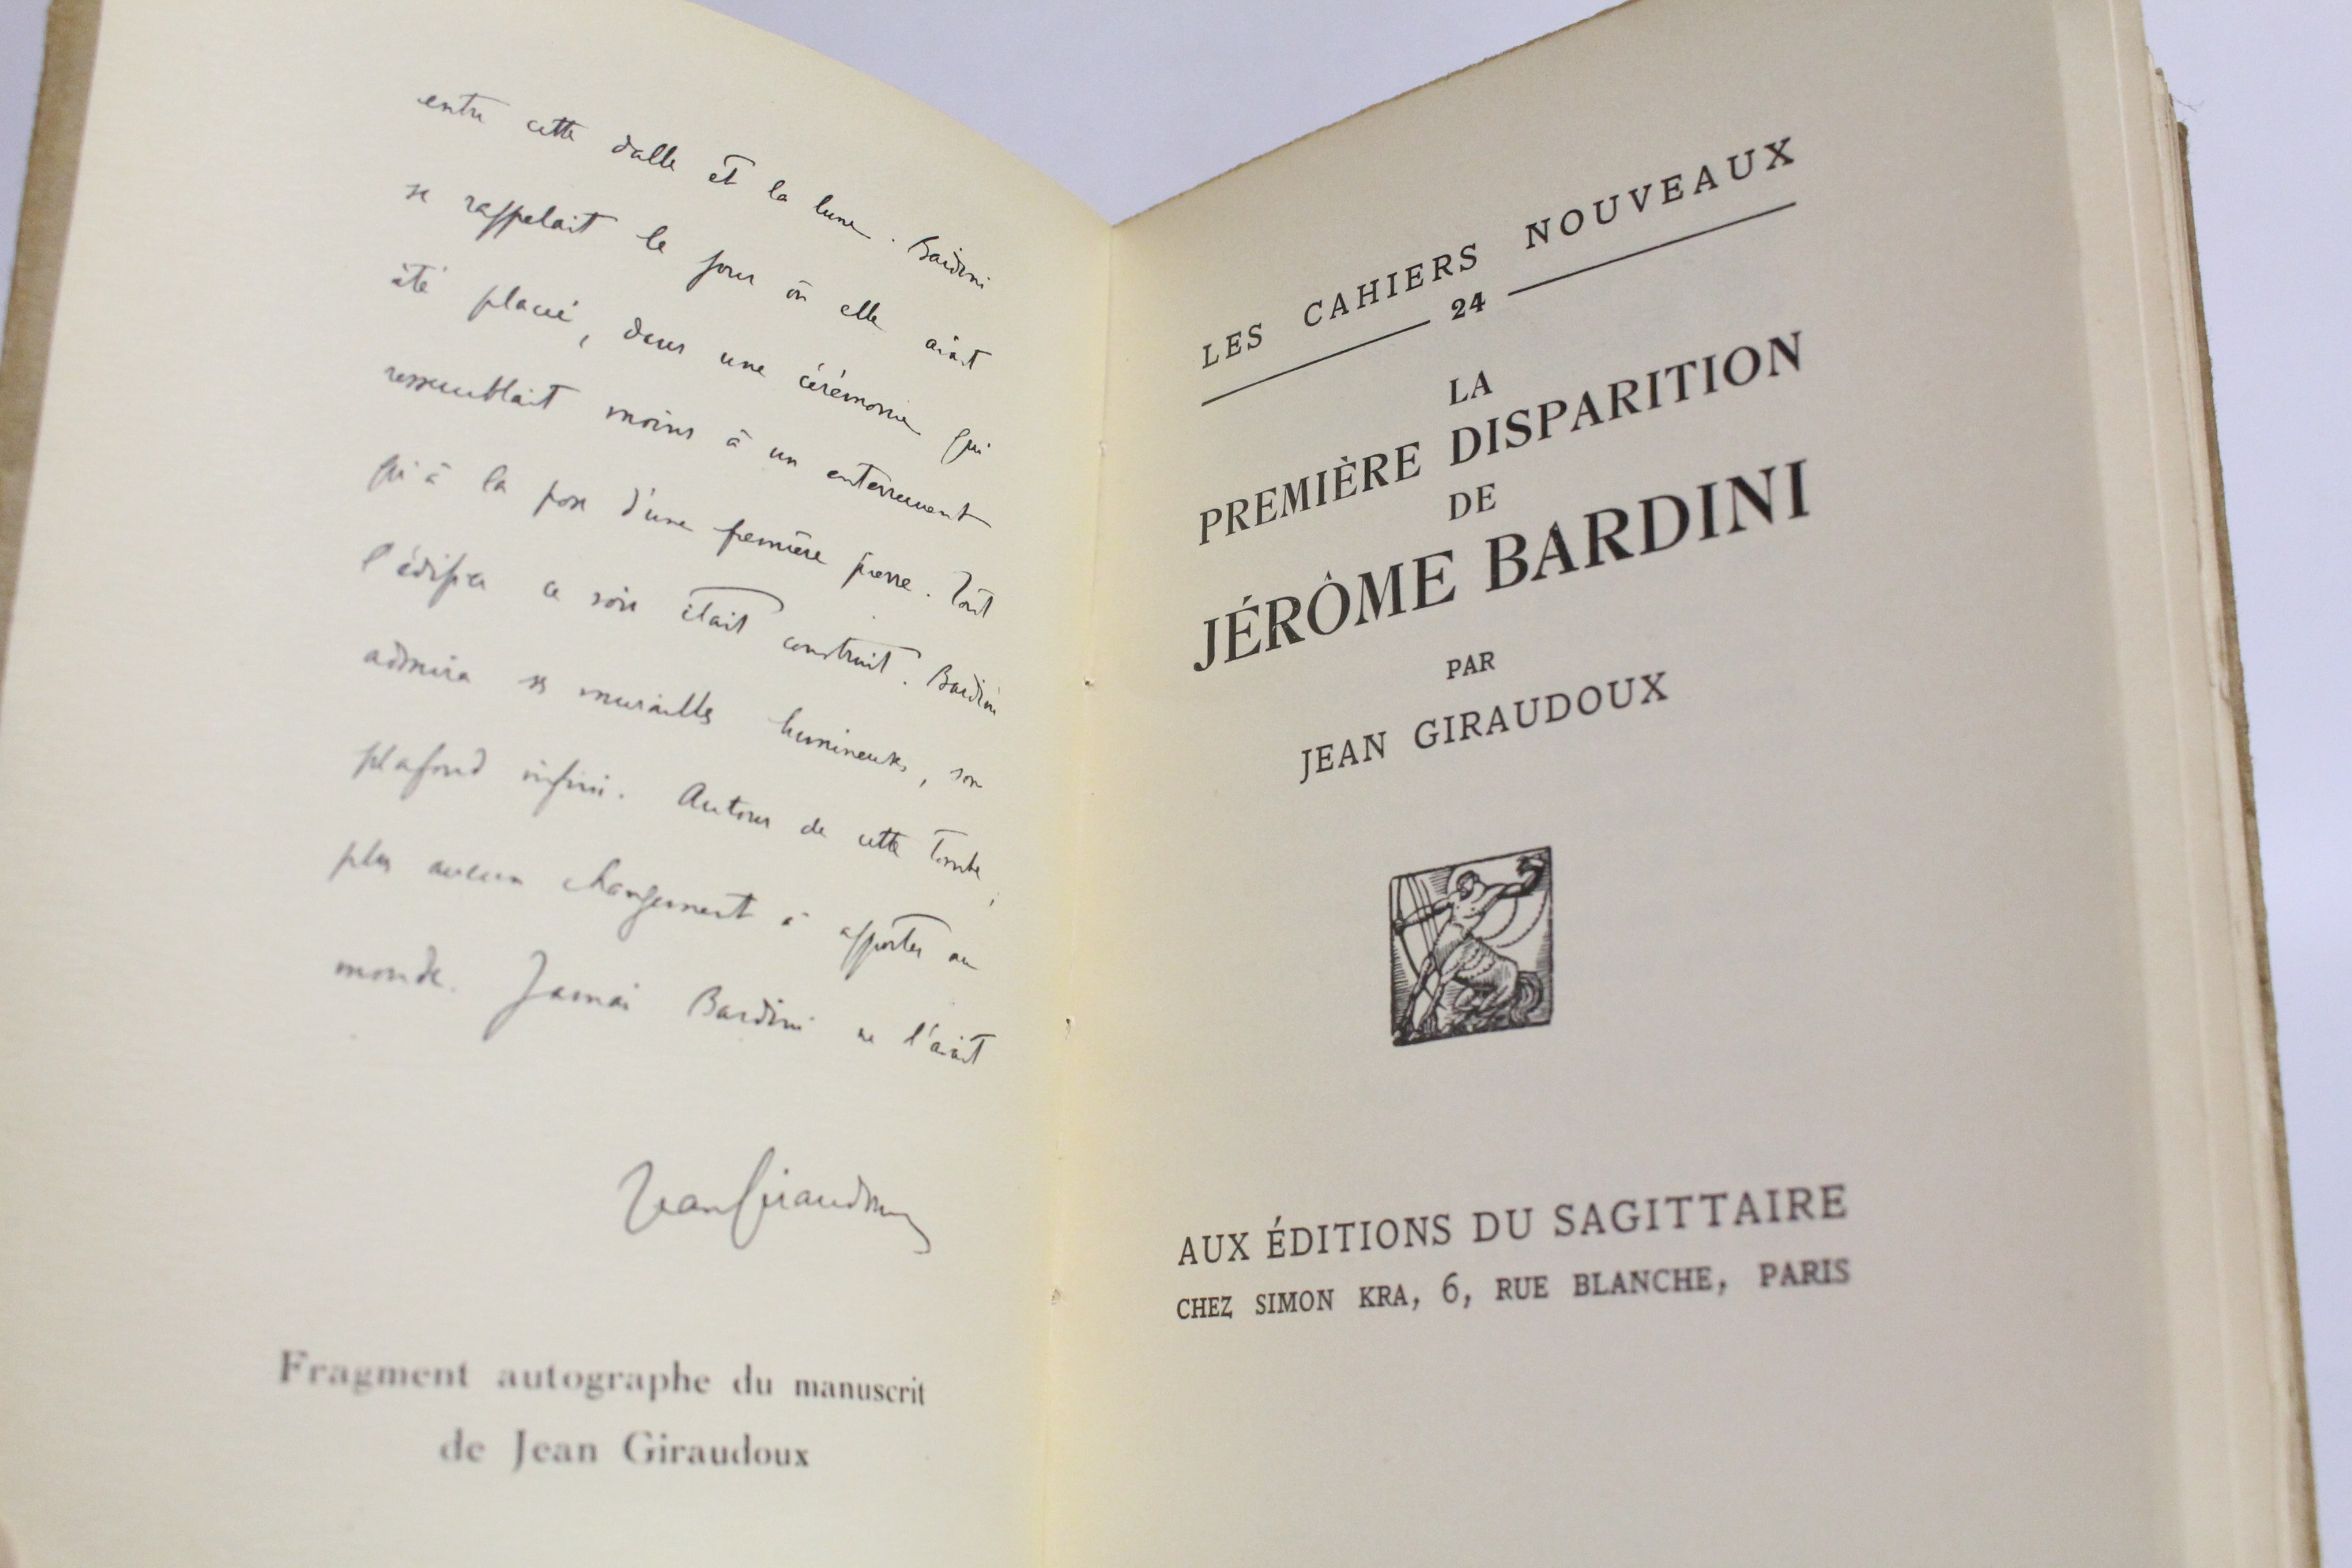 entre cette dalle et la lune. Bardini
se rappelait le jour où elle avait
été placée, dans une cérémonie qui
ressemblait moins à un enterrement
qu'à la pose d'une première pierre. Tout
l'édifice ce soir était construit. Bardini
admira ses murailles lumineuses, son
plafond infini. Autour de cette tombe,
plus aucun changement à apporter au
monde. Jamais Bardini ne l'avait
Jean Giraudoux
Fragment autographe du manuscrit
de Jean Giraudoux
LES CAHIERS NOUVEAUX
24
LA
PREMIÈRE DISPARITION
DE
JÉRÔME BARDINI
PAR
JEAN GIRAUDOUX
AUX ÉDITIONS DU SAGITTAIRE
CHEZ SIMON KRA, 6, RUE BLANCHE, PARIS